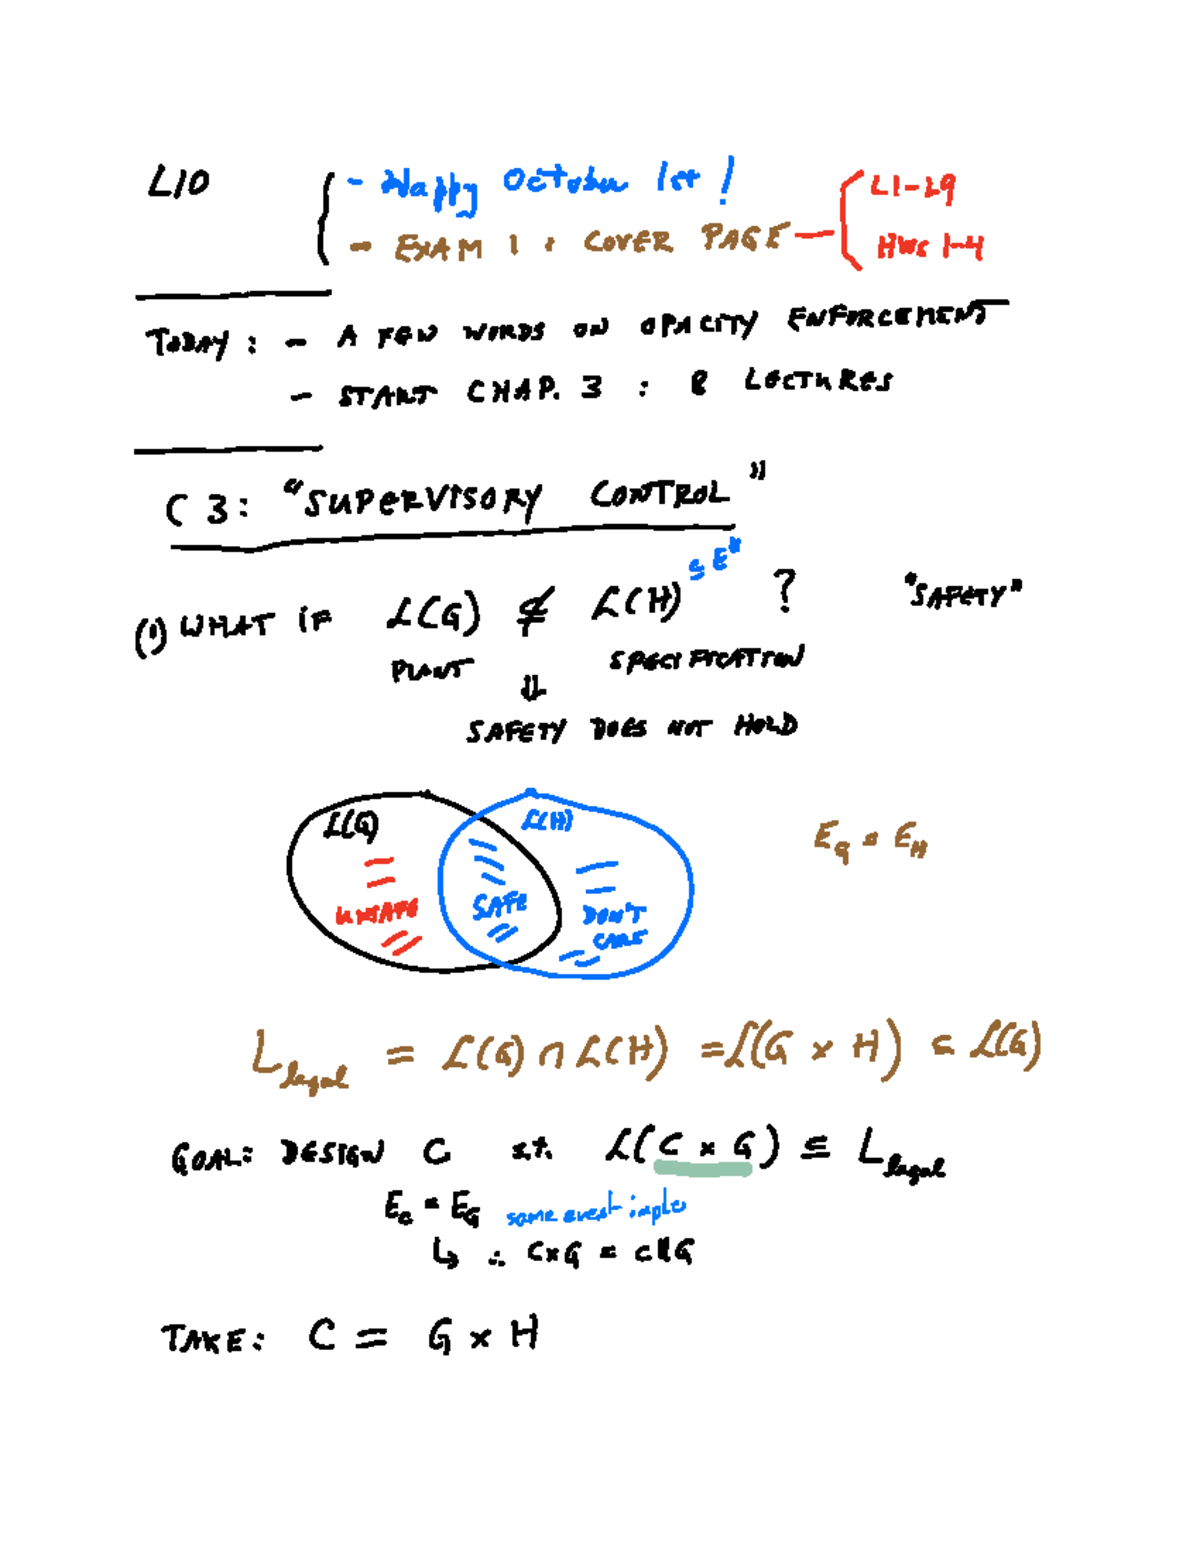 L10
- Happy October 1st!
- EXAM 1 : COVER PAGE — { L1-L9
HWs 1-4
TODAY: - A FEW WORDS ON OPACITY ENFORCEMENT
- START CHAP. 3 : 8 LECTURES
C 3: "SUPERVISORY CONTROL"
(1) WHAT IF L(G) ⊄ L(H) ⊆ E* ? "SAFETY"
PLANT SPECIFICATION
⇓
SAFETY DOES NOT HOLD
L(G) L(H)
UNSAFE SAFE DON'T CARE
E_G = E_H
L_legal = L(G) ∩ L(H) = L(G × H) ⊆ L(G)
GOAL: DESIGN C s.t. L(C × G) ⊆ L_legal
E_C = E_G same event
↳ ∴ C×G = C||G
TAKE: C = G × H